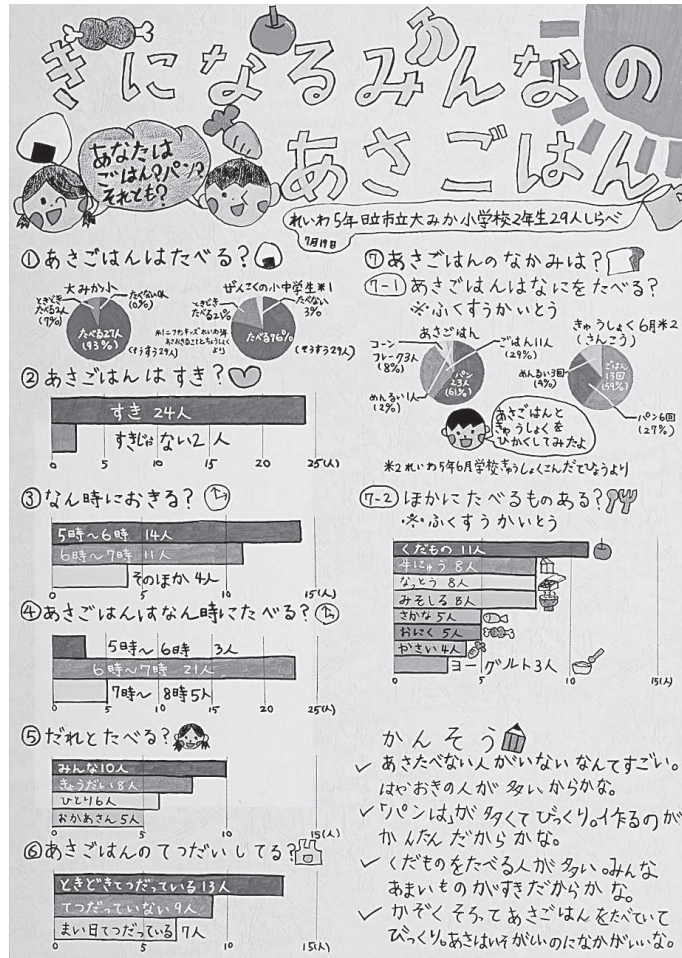 きになるみんなの
あさごはん
あなたは
ごはん?パン?
それとも?
れいわ5年日立市立大みか小学校2年生29人しらべ
7月19日
①あさごはんはたべる?
大みか小
ときどき
たべる2人
(7%)
たべない0人
(0%)
たべる27人
(93%)
(そうすう29人)
ぜんこくの小中学生※1
ときどき
たべる21%
たべない
3%
たべる76%
(そうすう29人)
②あさごはんはすき?
すき 24人
すきじゃない2人
0 5 10 15 20 25(人)
③なん時におきる?
5時〜6時 14人
6時〜7時 11人
そのほか 4人
0 5 10 15(人)
④あさごはんはなん時にたべる?
5時〜6時 3人
6時〜7時 21人
7時〜8時5人
0 5 10 15 20 25(人)
⑤だれとたべる?
みんな10人
きょうだい8人
ひとり6人
おかあさん5人
0 5 10 15(人)
⑥あさごはんのてつだいしてる?
ときどきてつだっている13人
てつだっていない9人
まい日てつだっている7人
0 5 10 15(人)
⑦あさごはんのなかみは?
⑦-1 あさごはんはなにをたべる?
※ふくすうかいとう
あさごはん
コーン
フレーク3人
(8%)
ごはん11人
(29%)
めんるい1人
(2%)
パン
23人
(61%)
きゅうしょく6月※2
(さんこう)
めんるい3回
(4%)
ごはん
13回
(59%)
パン6回
(27%)
あさごはんと
きゅうしょくを
ひかくしてみたよ
※2れいわ5年6月学校きゅうしょくこんだてひょうより
⑦-2 ほかにたべるものある?
※ふくすうかいとう
くだもの 11人
牛にゅう 8人
なっとう 8人
みそしる 8人
さかな 5人
おにく 5人
やさい 4人
ヨーグルト3人
0 5 10 15(人)
かんそう
✓ あさたべない人がいないなんてすごい。
はやおきの人が多いからかな。
✓ 「パンは」が多くてびっくり。作るのが
かんたんだからかな。
✓ くだものをたべる人が多い。みんな
あまいものがすきだからかな。
✓ かぞくそろってあさごはんをたべていて
びっくり。あさはいそがしいのになかがいいな。